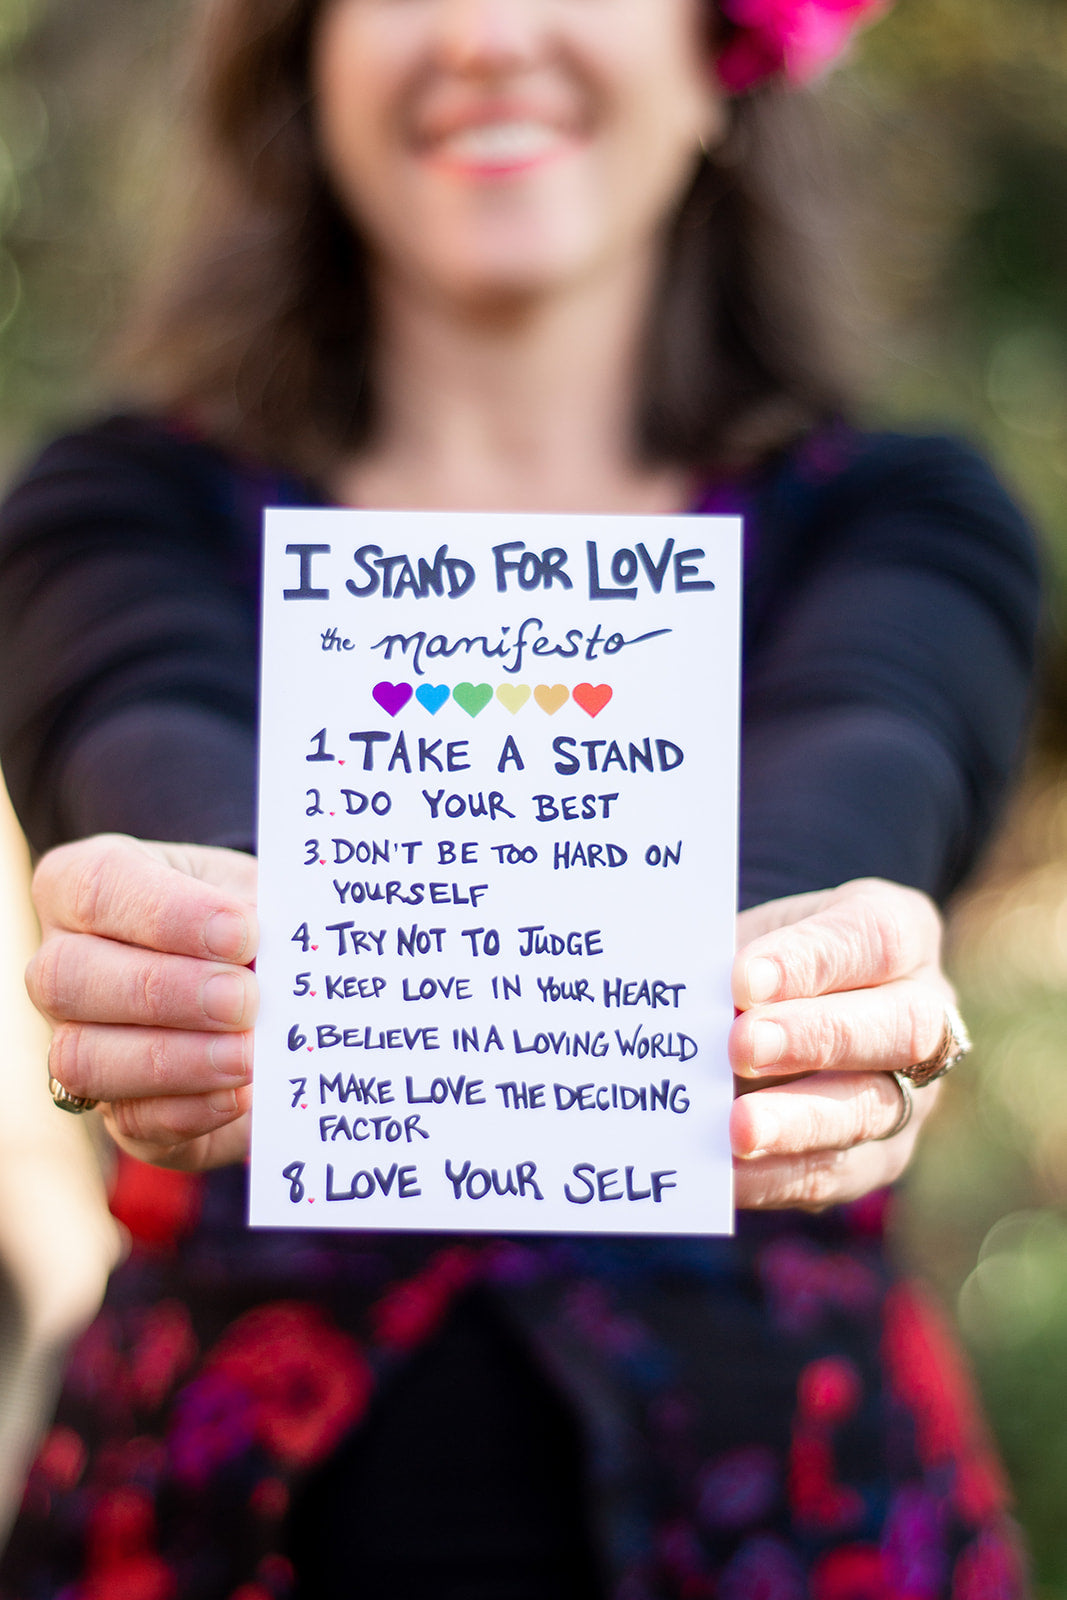 I STAND FOR LOVE
the manifesto
1. TAKE A STAND
2. DO YOUR BEST
3. DON'T BE TOO HARD ON
YOURSELF
4. TRY NOT TO JUDGE
5. KEEP LOVE IN YOUR HEART
6. BELIEVE IN A LOVING WORLD
7. MAKE LOVE THE DECIDING
FACTOR
8. LOVE YOUR SELF